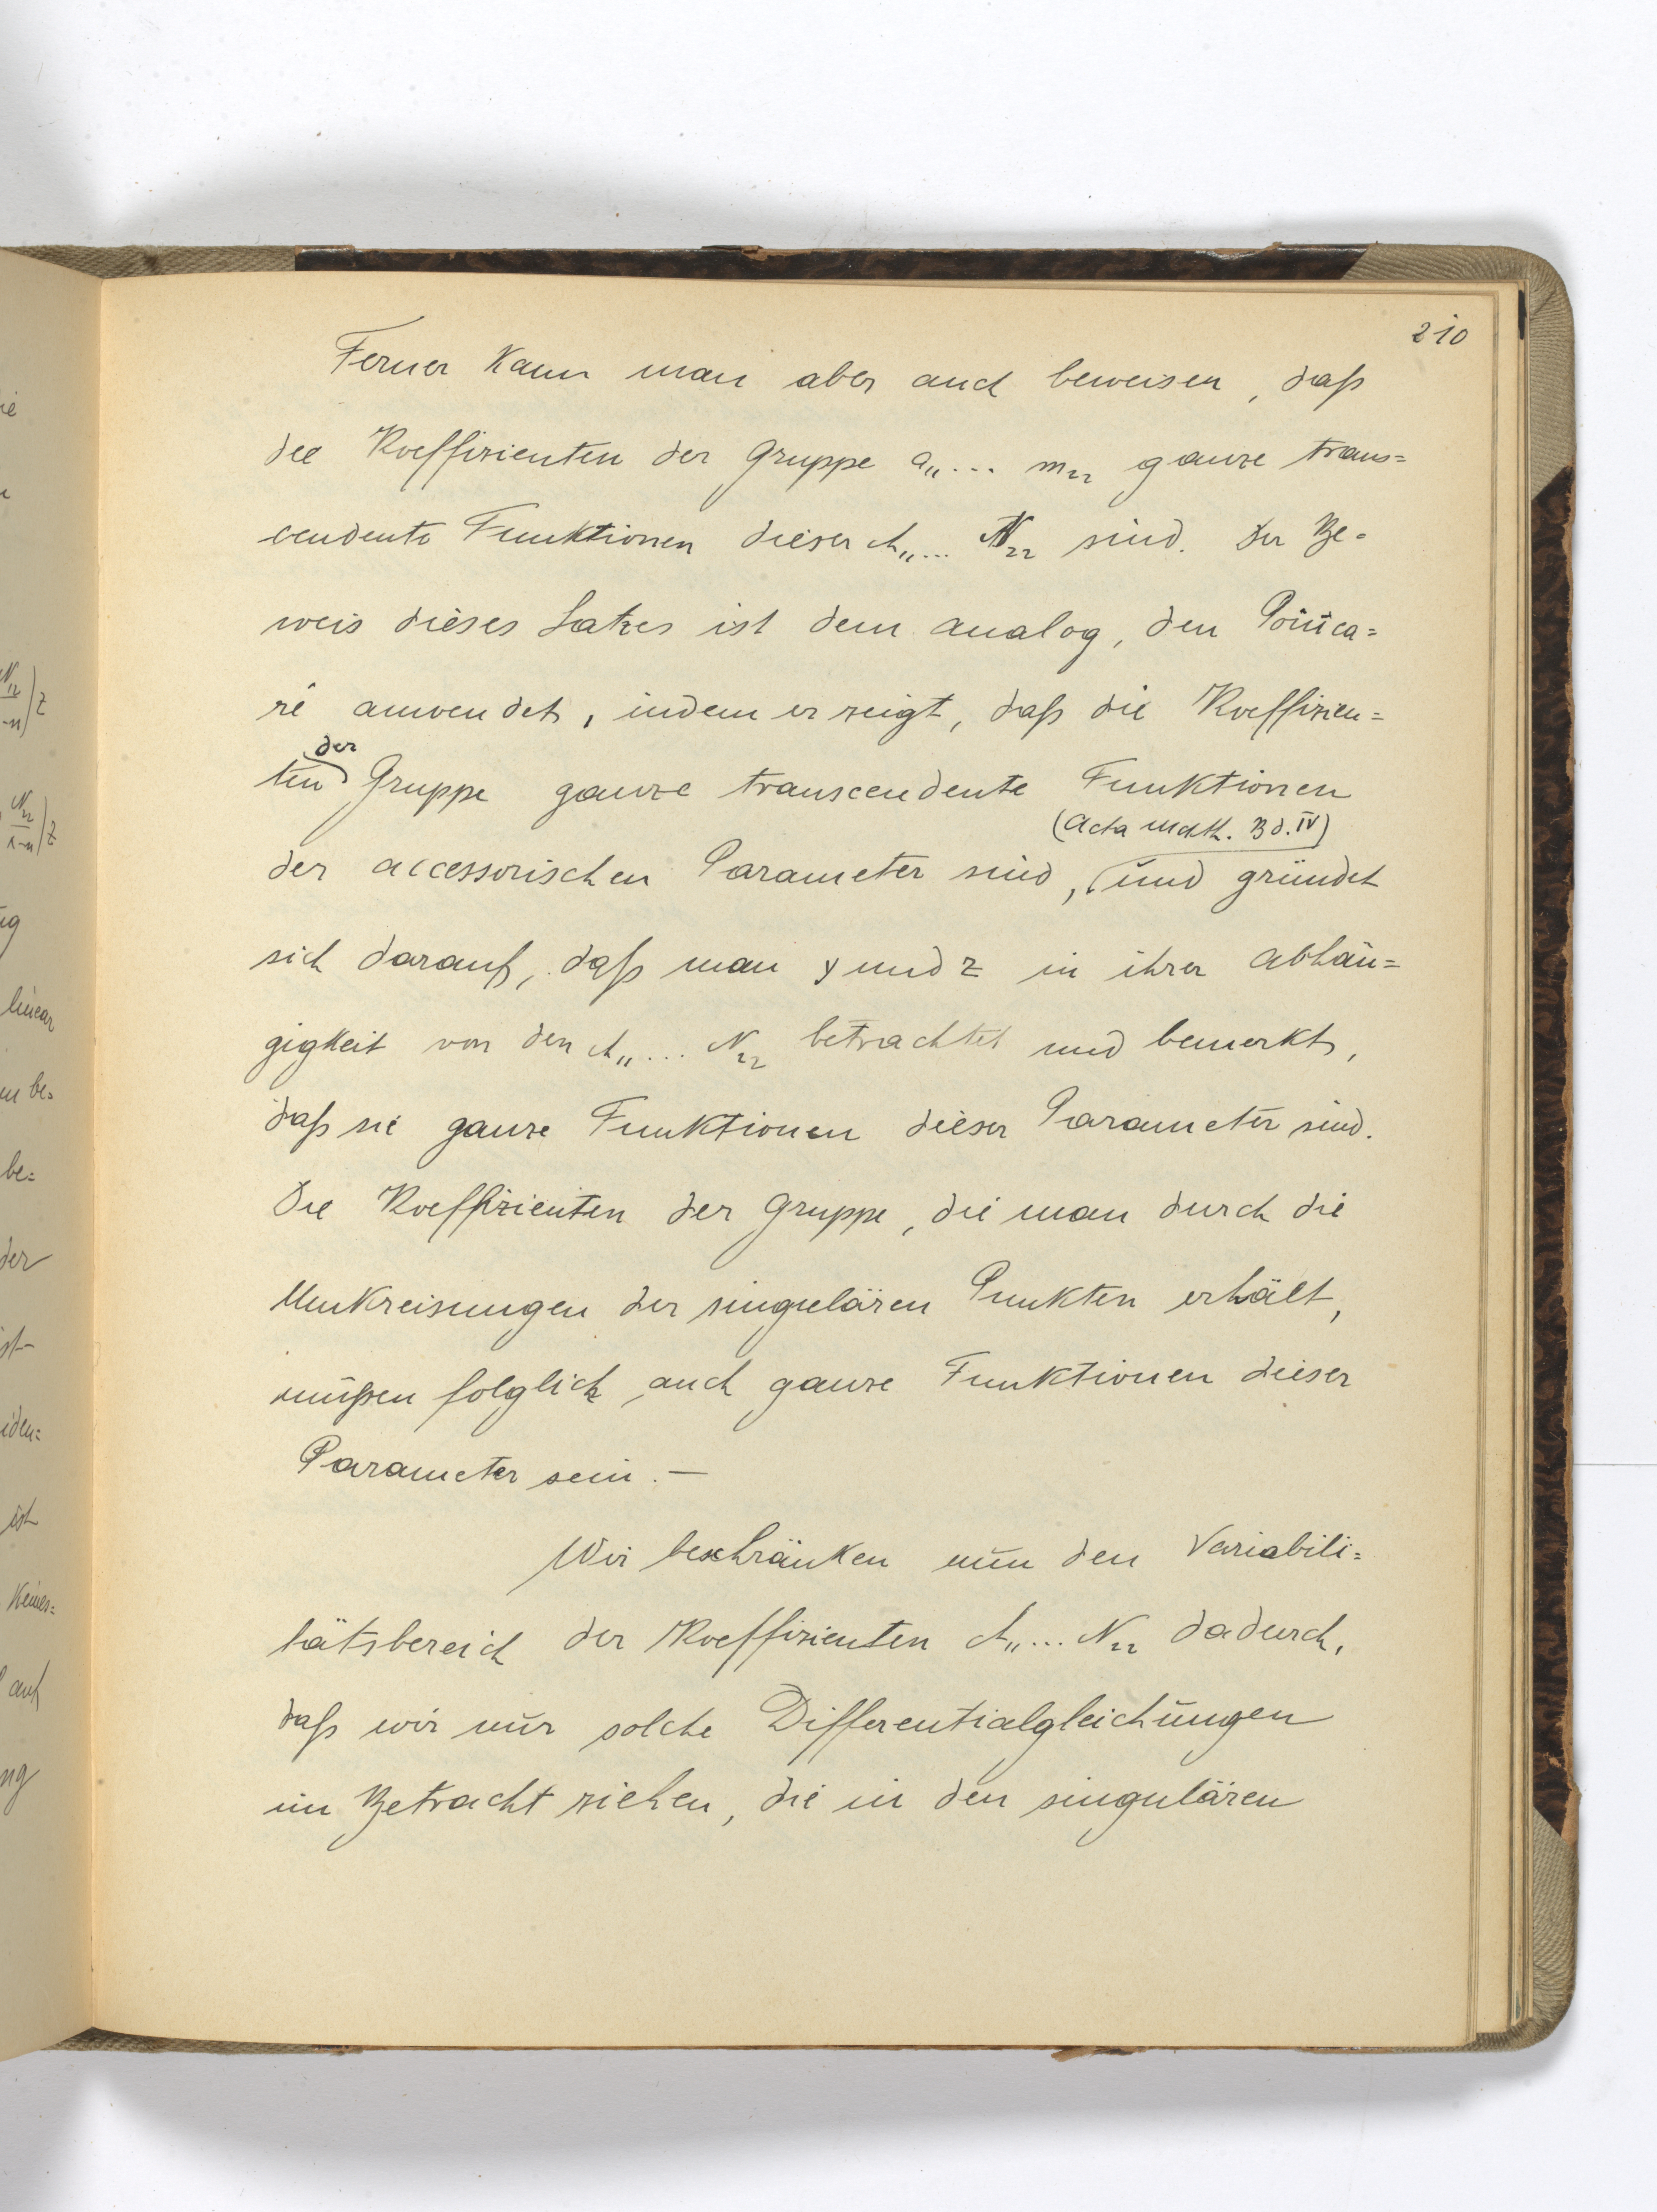 210
Ferner kann man aber auch beweisen, daß
die Koeffizienten der Gruppe a₁₁ ... m₂₂ ganze trans=
cendente Funktionen dieser A₁₁ ... N₂₂ sind. Der Be=
weis dieses Satzes ist dem analog, den Poinca=
ré anwendet, indem er zeigt, daß die Koeffizien=
ten der Gruppe ganze transcendente Funktionen
(Acta Math. Bd. IV)
der accessorischen Parameter sind, und gründet
sich darauf, daß man y und z in ihrer Abhän=
gigkeit von den A₁₁ ... N₂₂ betrachtet und bemerkt,
daß sie ganze Funktionen dieser Parameter sind.
Die Koeffizienten der Gruppe, die man durch die
Umkreisungen der singulären Punkten erhält,
müßen folglich auch ganze Funktionen dieser
Parameter sein. —
Wir beschränken nun den Variabili=
tätsbereich der Koeffizienten A₁₁ ... N₂₂ dadurch,
daß wir nur solche Differentialgleichungen
in Betracht ziehen, die in den singulären